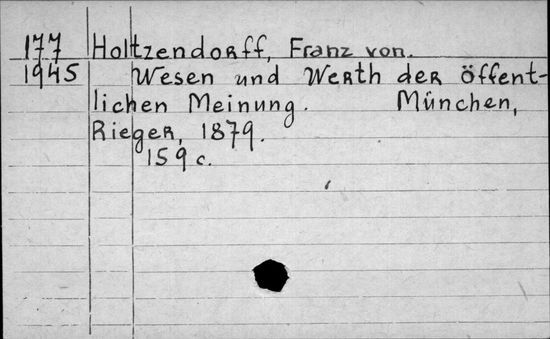 177 Holtzendorff, Franz von.
1945 Wesen und Werth der öffent-
lichen Meinung. München,
Rieger, 1879.
159 c.